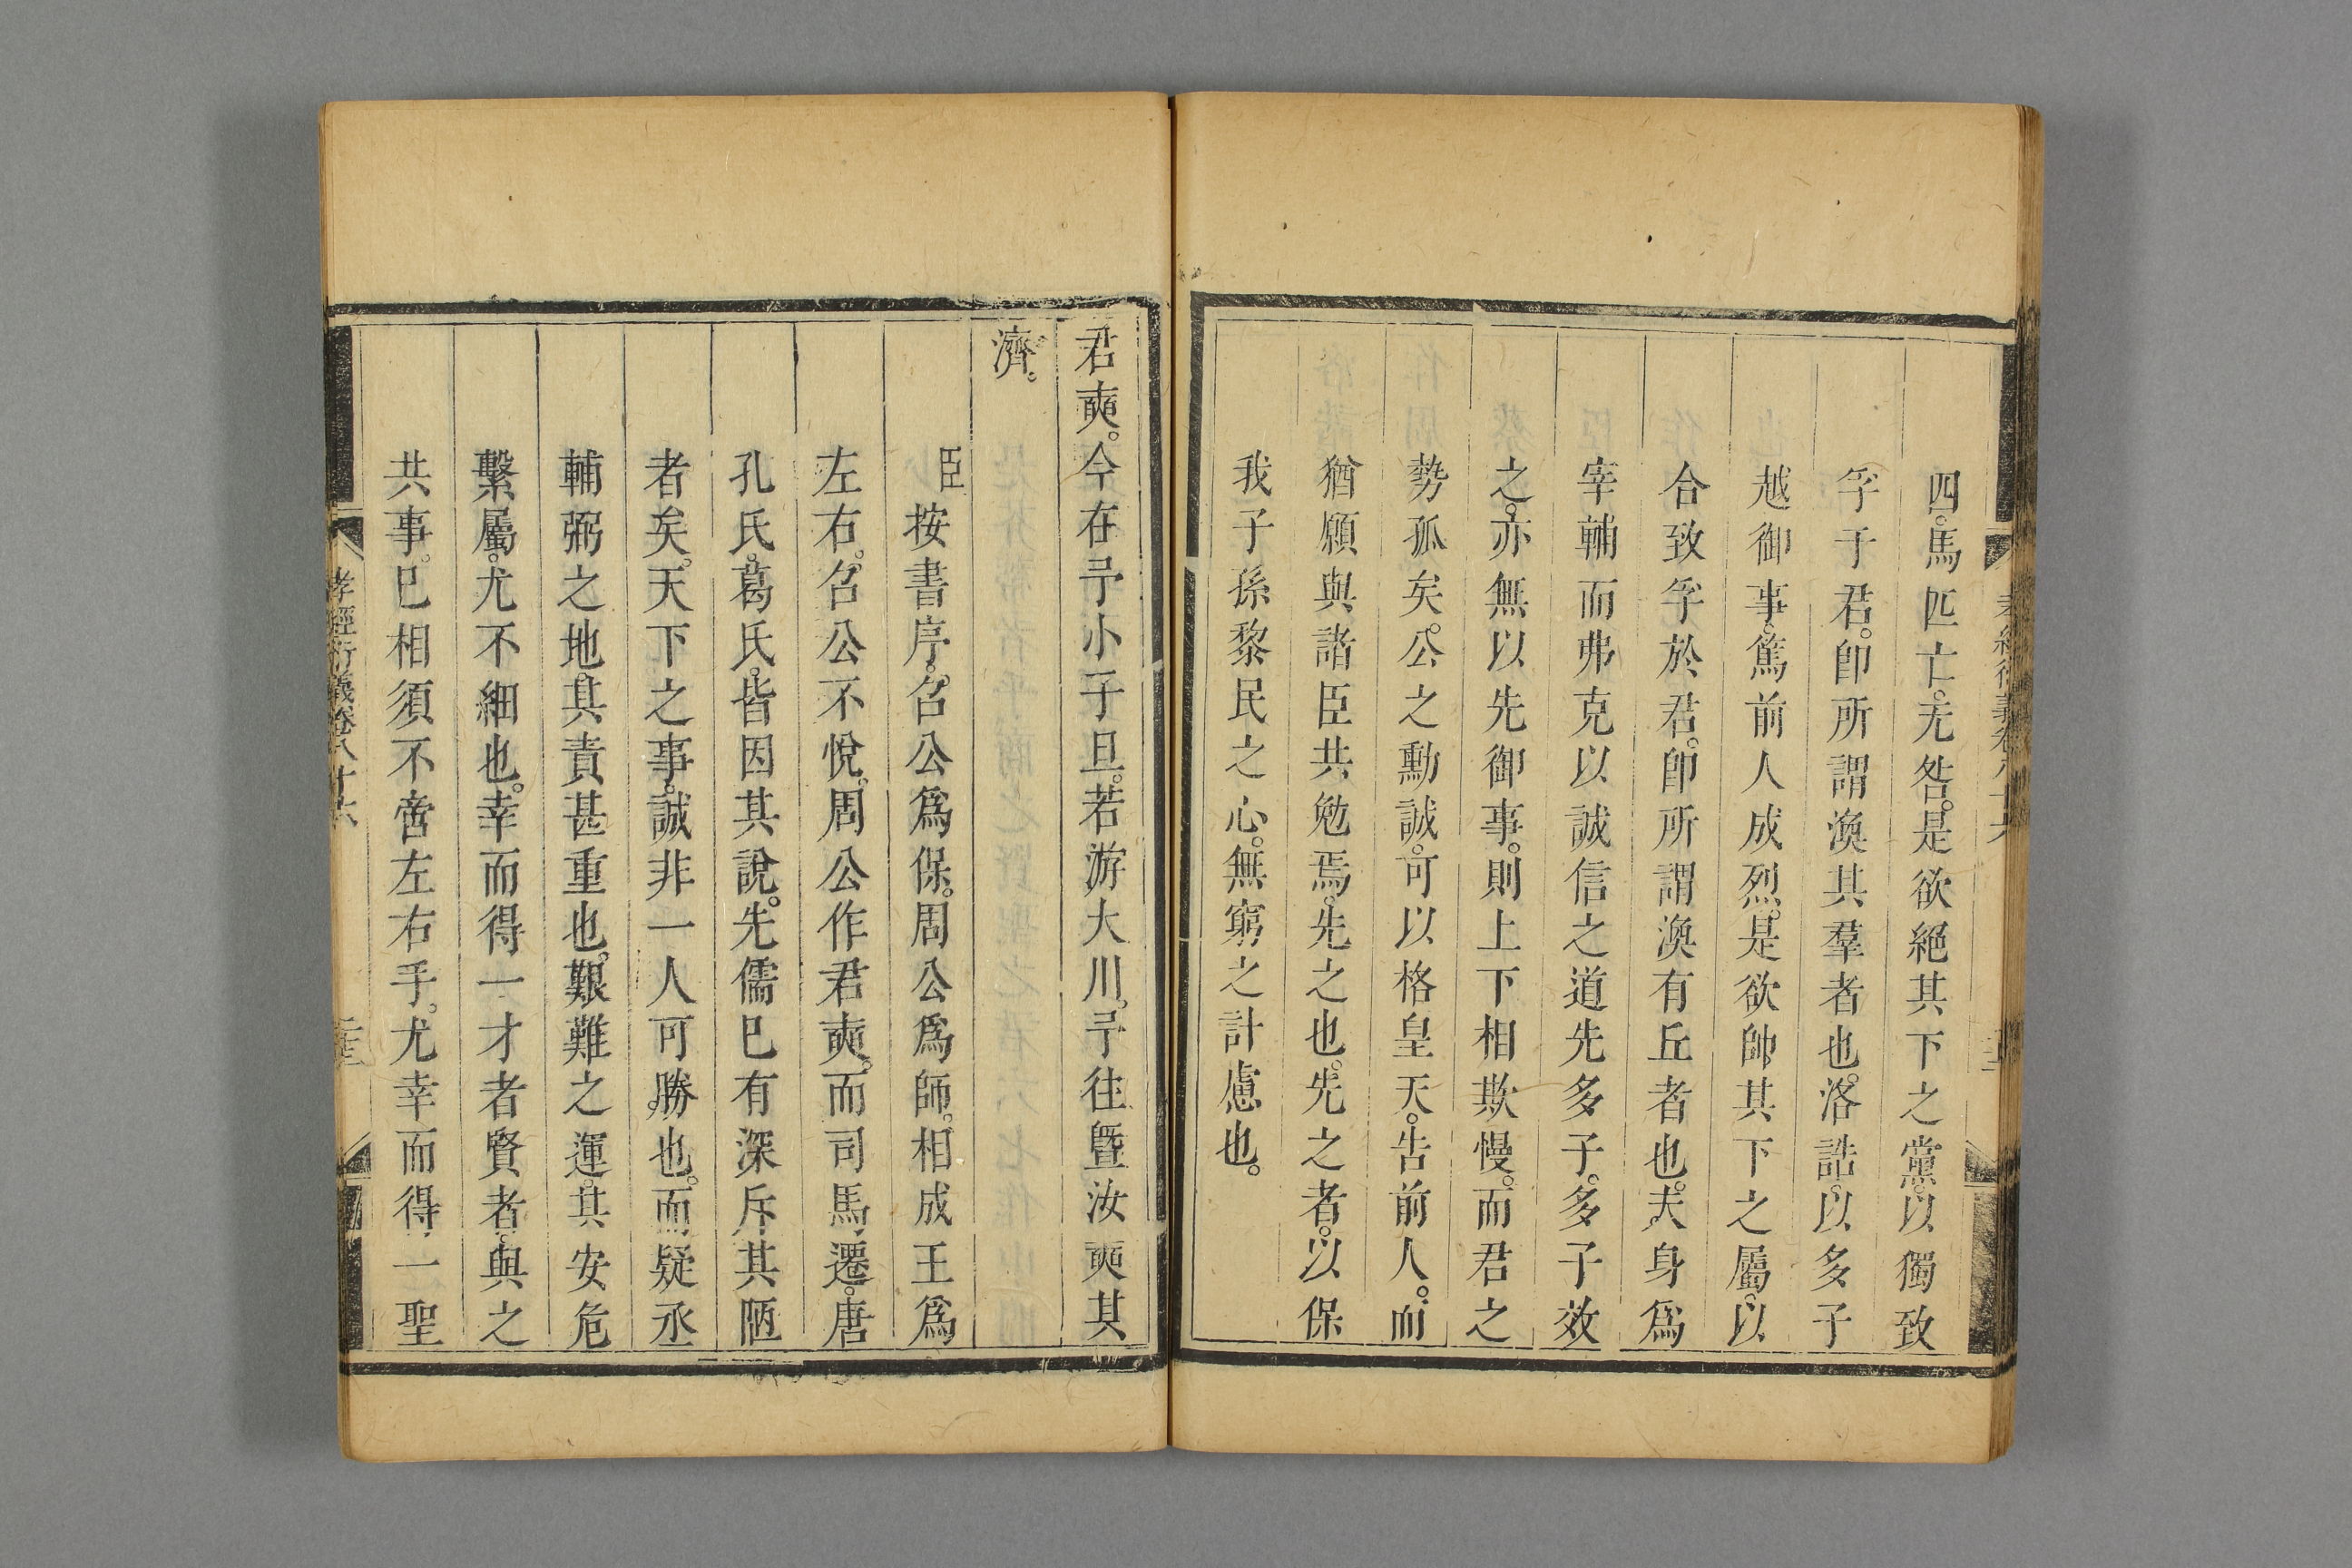 四。馬匹亡。无咎。是欲絕其下之黨。以獨致
孚于君。卽所謂渙其羣者也。洛誥。以多子
越御事。篤前人成烈。是欲帥其下之屬。以
合致孚於君。卽所謂渙有丘者也。夫身爲
宰輔而弗克以誠信之道先多子。多子效
之。亦無以先御事。則上下相欺慢。而君之
勢孤矣。公之勳誠。可以格皇天。告前人。而
猶願與諸臣共勉焉。先之也。先之者。以保
我子孫黎民之心。無窮之計慮也。
君奭。今在予小子旦。若游大川。予往曁汝奭其
濟。
臣按書序。召公爲保。周公爲師。相成王爲
左右。召公不悅。周公作君奭。而司馬遷。唐
孔氏。葛氏。皆因其說。先儒已有深斥其陋
者矣。天下之事。誠非一人可勝也。而疑丞
輔弼之地。其責甚重也。艱難之運。其安危
繫屬。尤不細也。幸而得一才者賢者。與之
共事。已相須不啻左右手。尤幸而得一聖
孝經衍義卷八十六